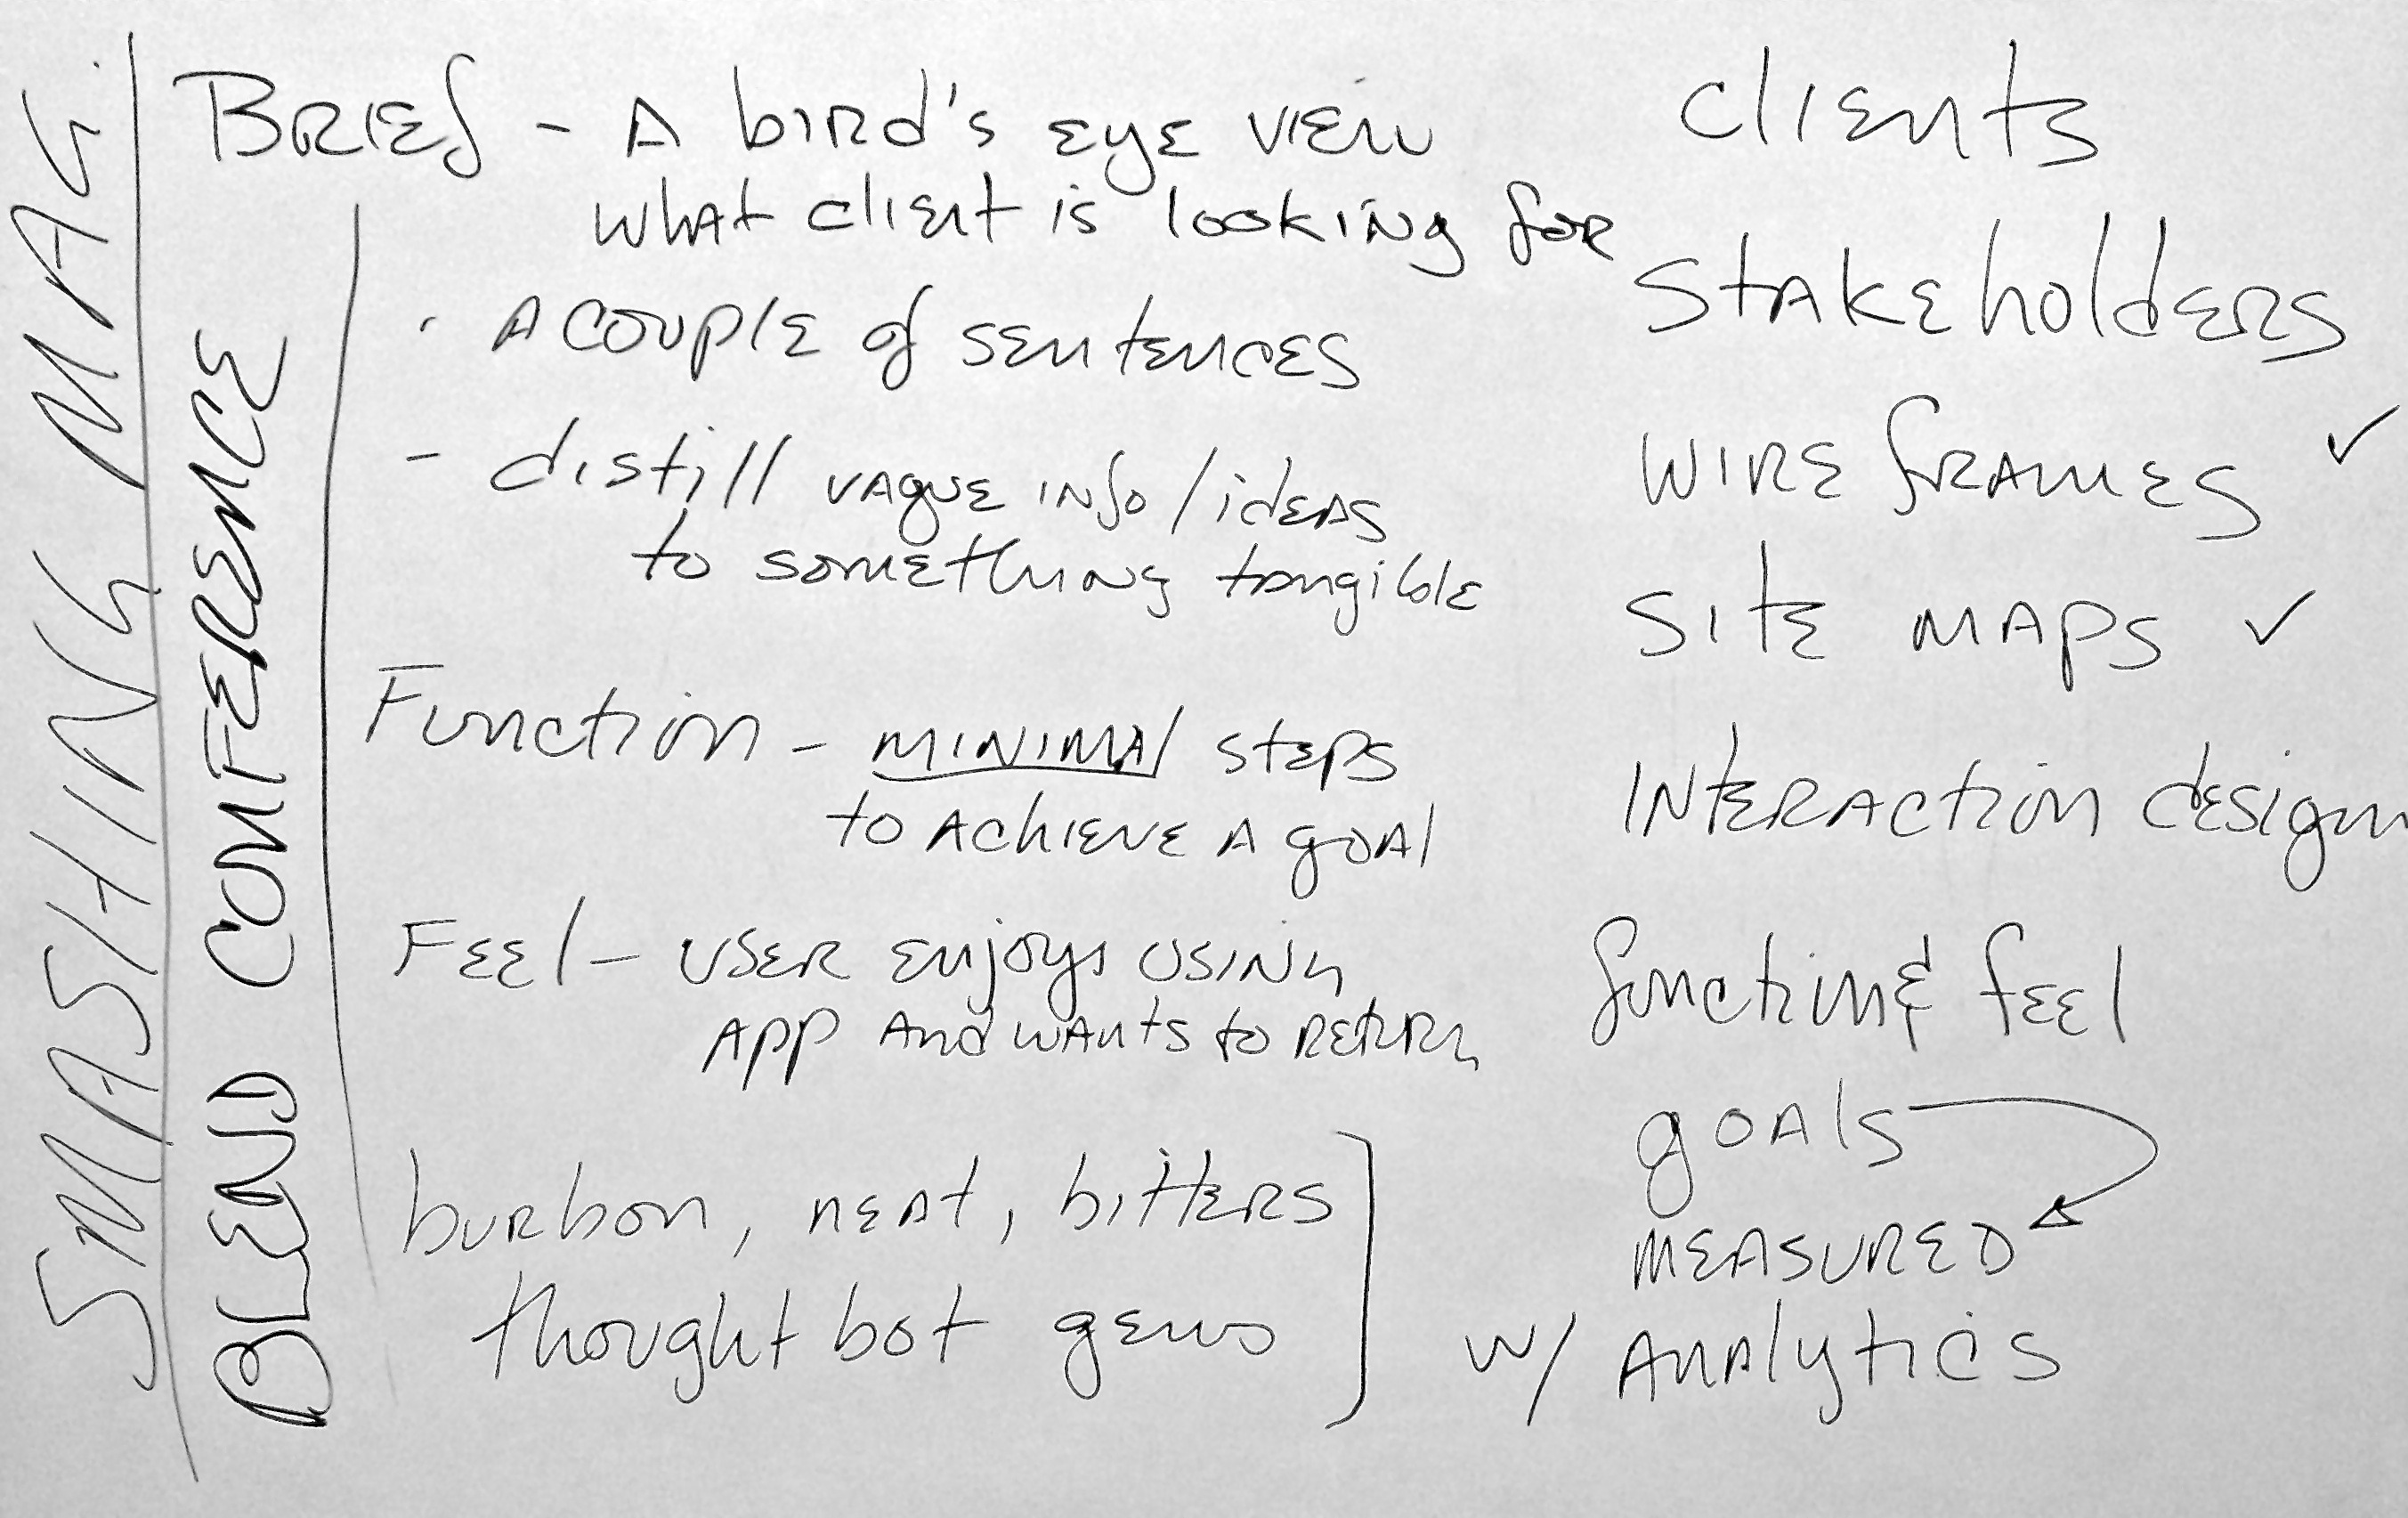 SMASHING MAG.
BLEND CONFERENCE
BRIEf - A biRd's EyE VIEW
what client is looking for
· A couple of sentences
- distill vague info/ideas
to something tangible
Function - minimal steps
to achieve a goal
Feel - user enjoys using
app and wants to return
burbon, neat, bitters
thought bot gems
clients
stakeholders
wire frames ✓
site maps ✓
Interaction design
function & feel
goals
measured
w/ Analytics